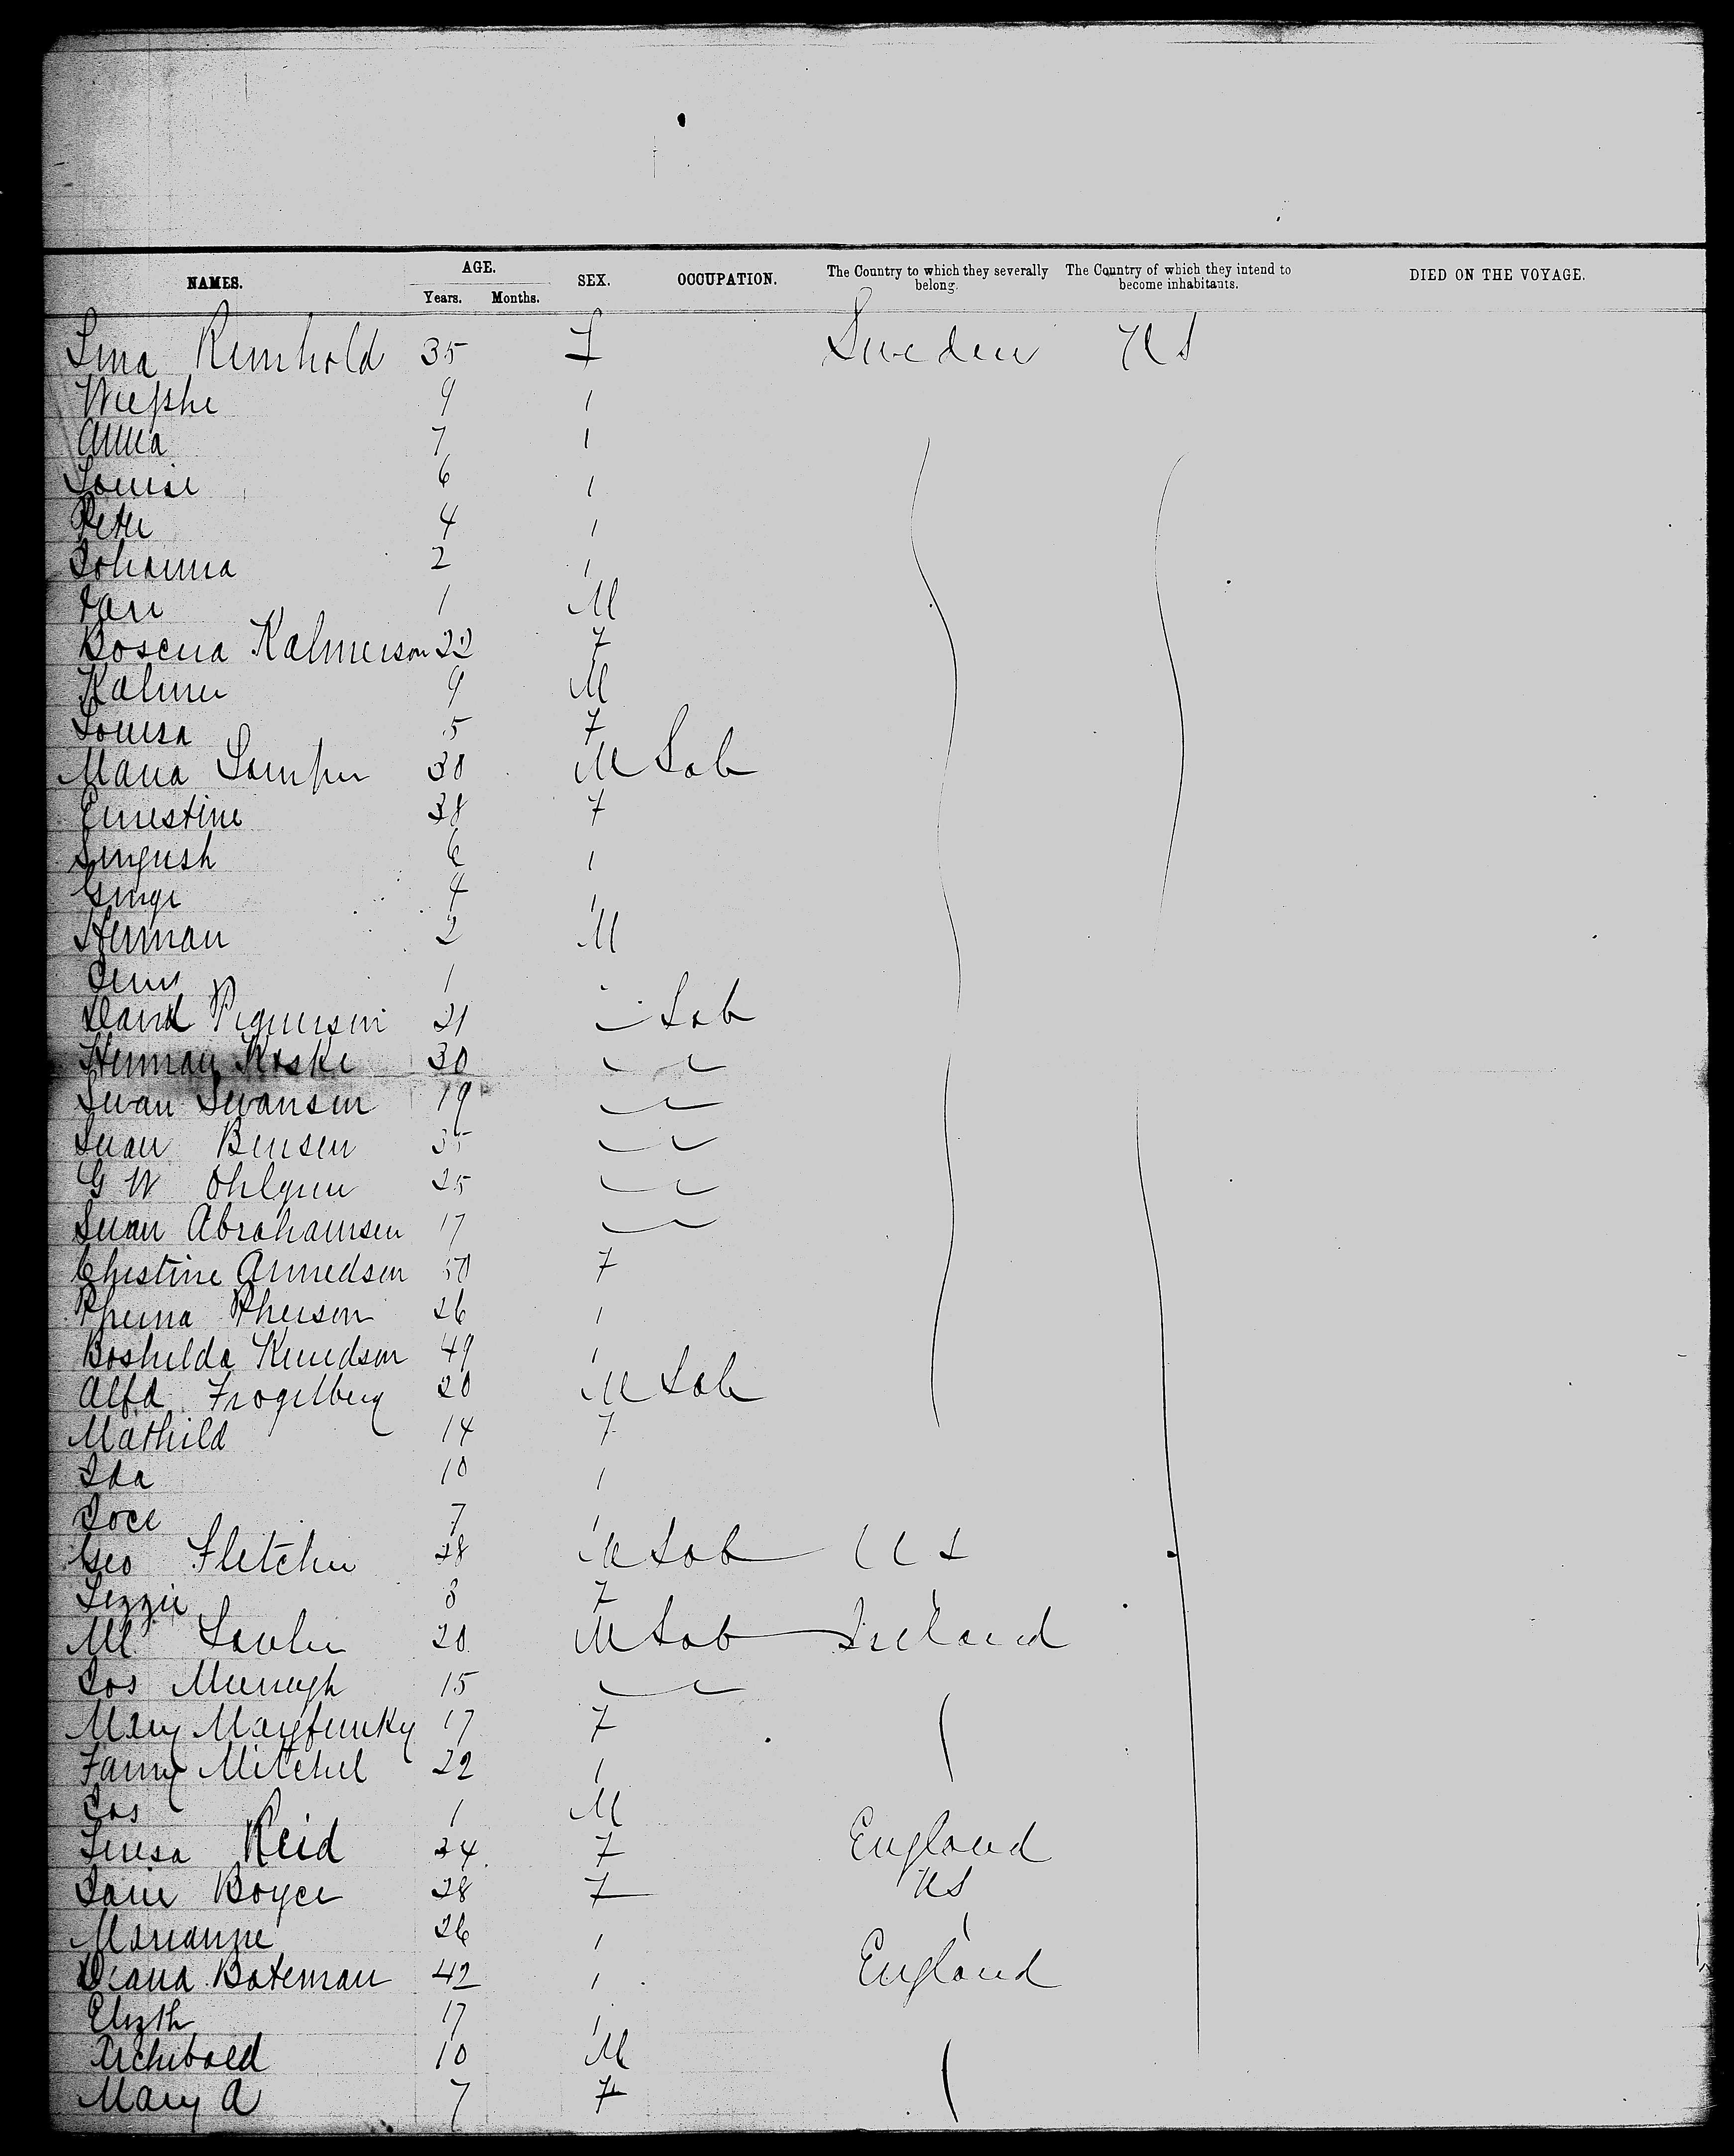 NAMES. AGE. Years. Months. SEX. OCCUPATION. The Country to which they severally belong. The Country of which they intend to become inhabitants. DIED ON THE VOYAGE.
Lina Reinhold 35 F Sweden US
9 1
Anna 7 1
Louise 6 1
Peter 4 1
Johanna 2 1
1 M
Bosena Kalmerson 22 F
Kalmer 9 M
Louisa 5 F
Maria 30 M Lab
Ernestine 38 F
6 1
4 1
Herman 2 M
Jens 1
David 21 Lab
Herman Koske 30
Swan Swansen 19
Swan Bensen 35
G W Ohlgren 25
Swan Abrahamsen 17
Christine Arnedsen 50 F
26 1
Boshilda Knudson 49 1
Alfd Frogelberg 20 M Lab
Mathild 14 F
Ida 10 1
7 1
Geo Fletcher 28 M Lab US
Lizzie 8 F
Ml Lawler 20 M Lab Ireland
Jos 15
Mary 17 F
Fanny Mitchel 22 1
Jos 1 M
Teresa Reid 24 F England
Jane Boyce 28 F US
Marianne 26 1
Diana Bateman 42 1 England
Elizth 17 1
Archibald 10 M
Mary A 7 F